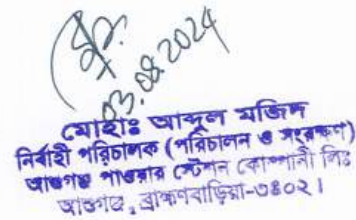 03.09.2024
মোহাঃ আব্দুল মজিদ
নির্বাহী পরিচালক (পরিচালন ও সংরক্ষণ)
আশুগঞ্জ পাওয়ার স্টেশন কোম্পানী লিঃ
আশুগঞ্জ, ব্রাহ্মণবাড়িয়া-৩৪০২।